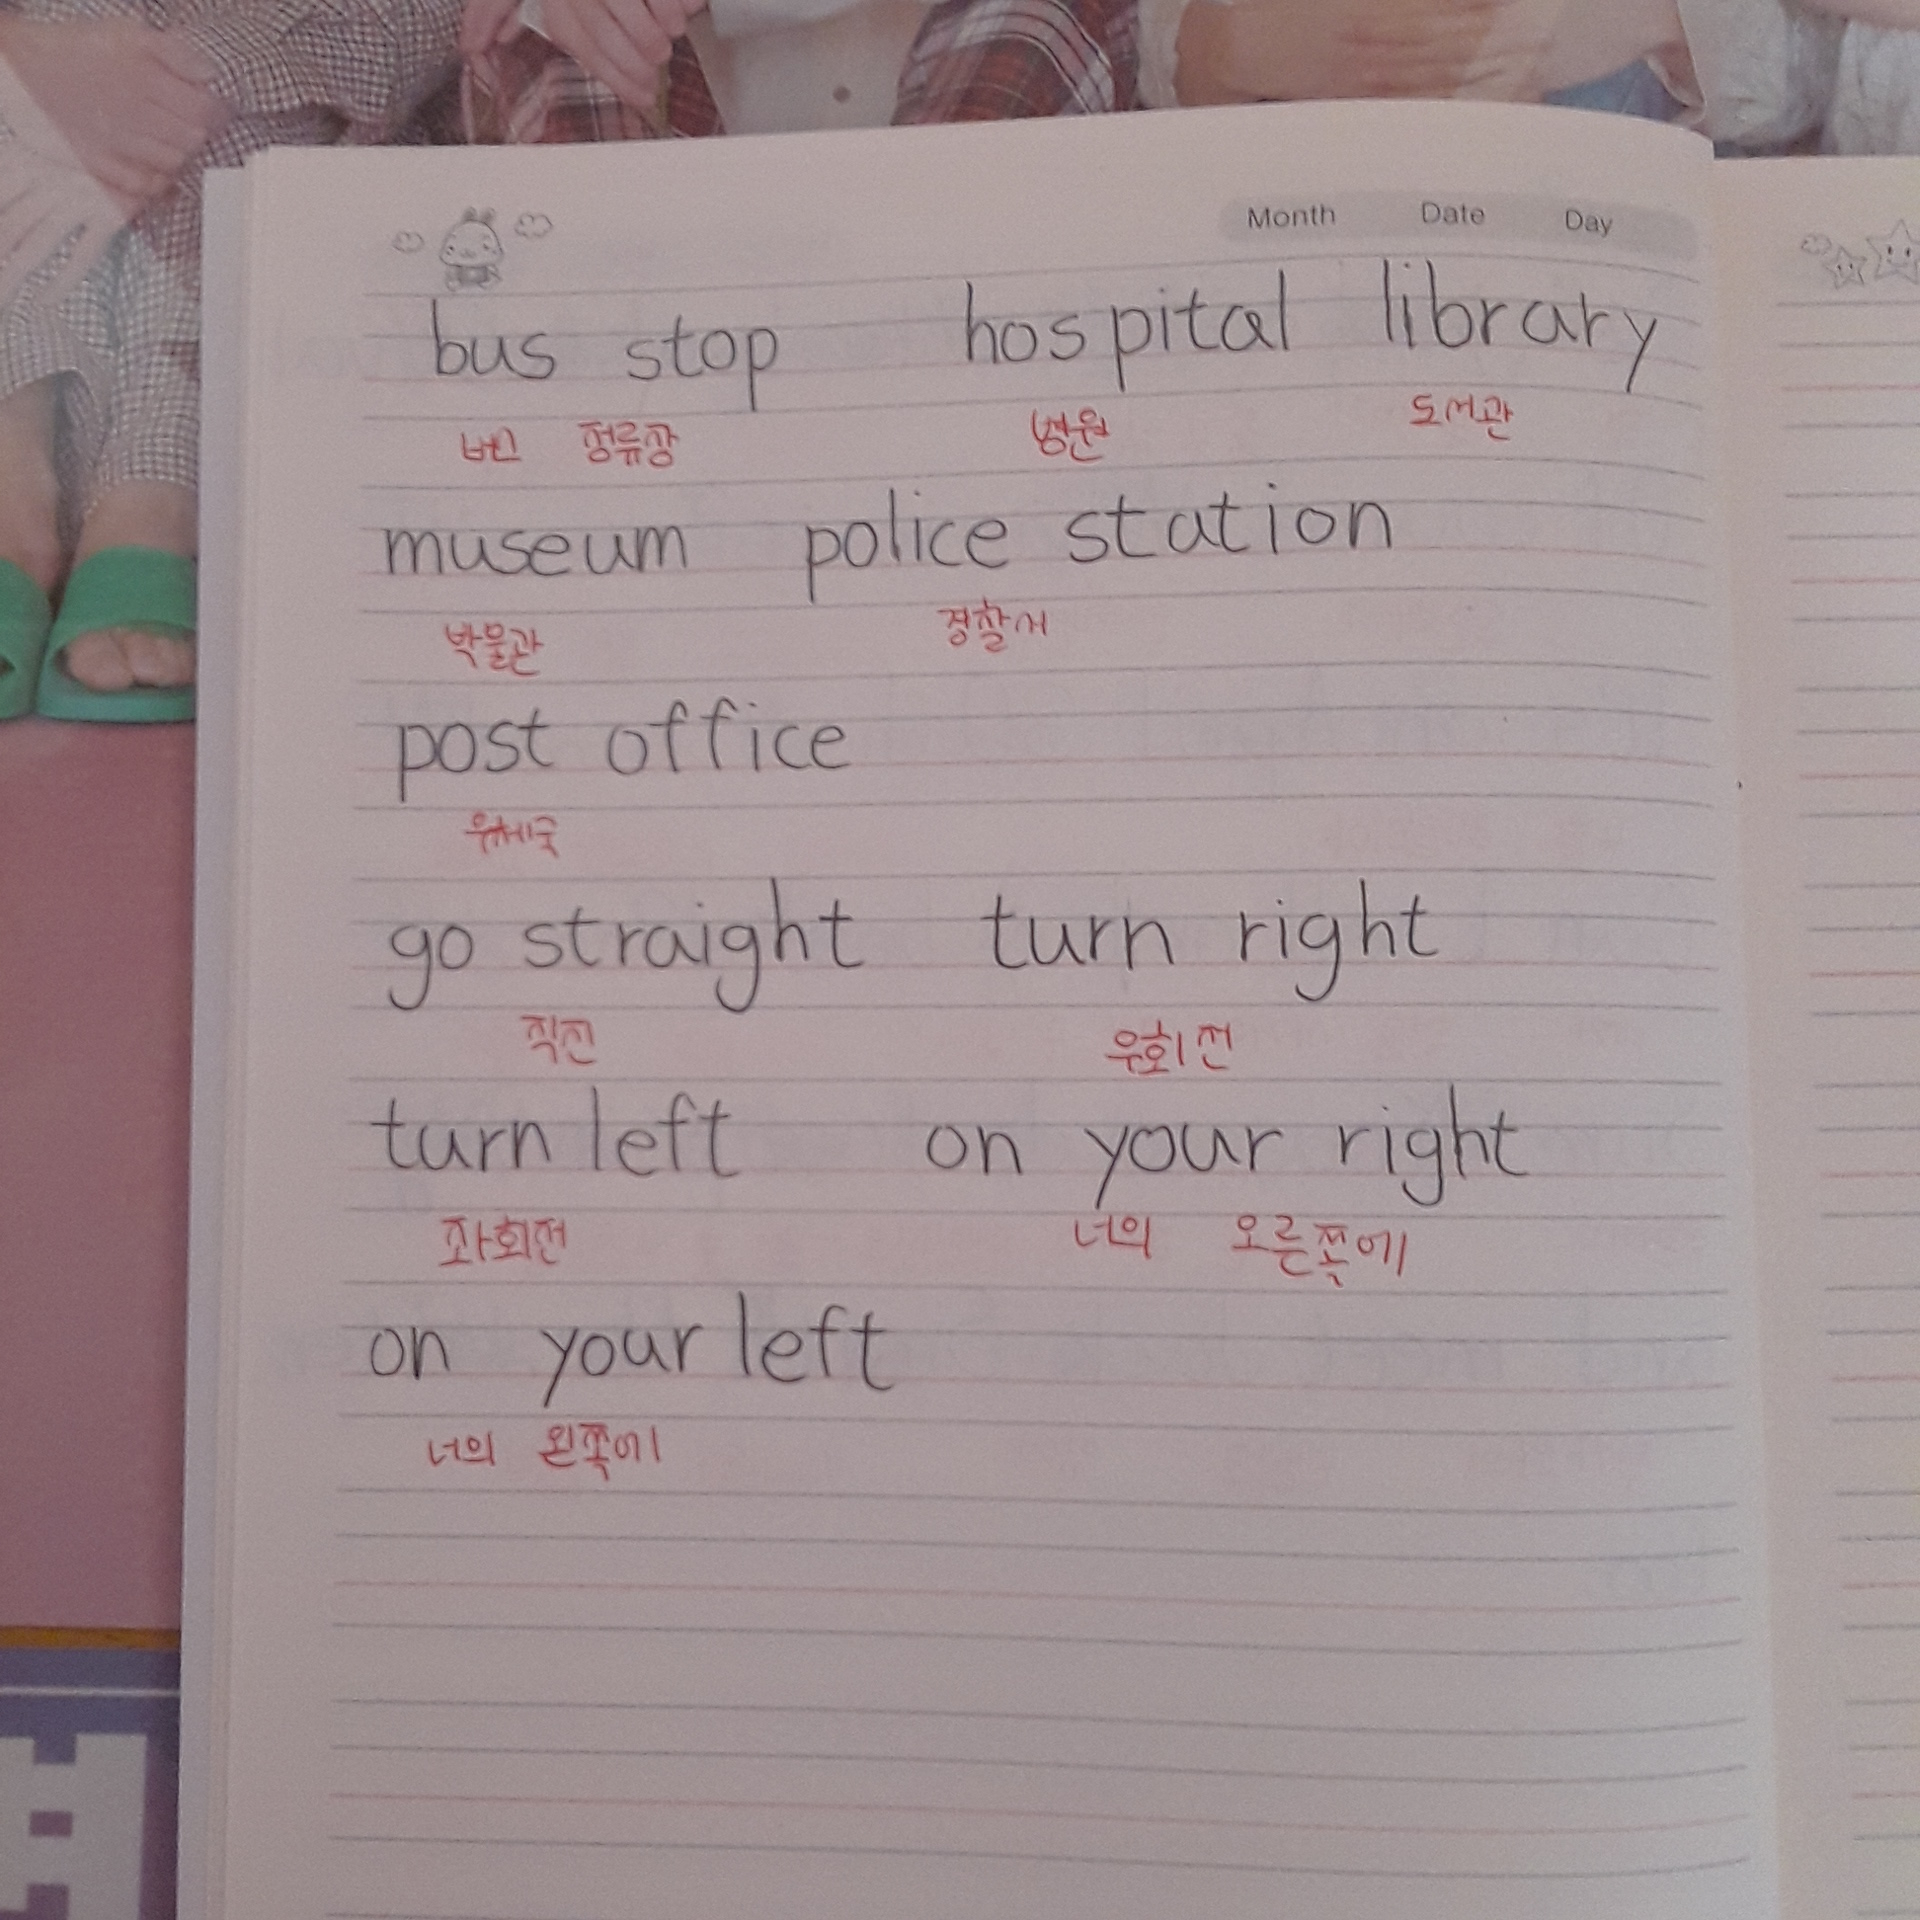 Month Date Day
bus stop hospital library
정류장 병원 도서관
museum police station
박물관 경찰서
post office
우체국
go straight turn right
직진 우회전
turn left on your right
좌회전 너의 오른쪽에
on your left
너의 왼쪽에